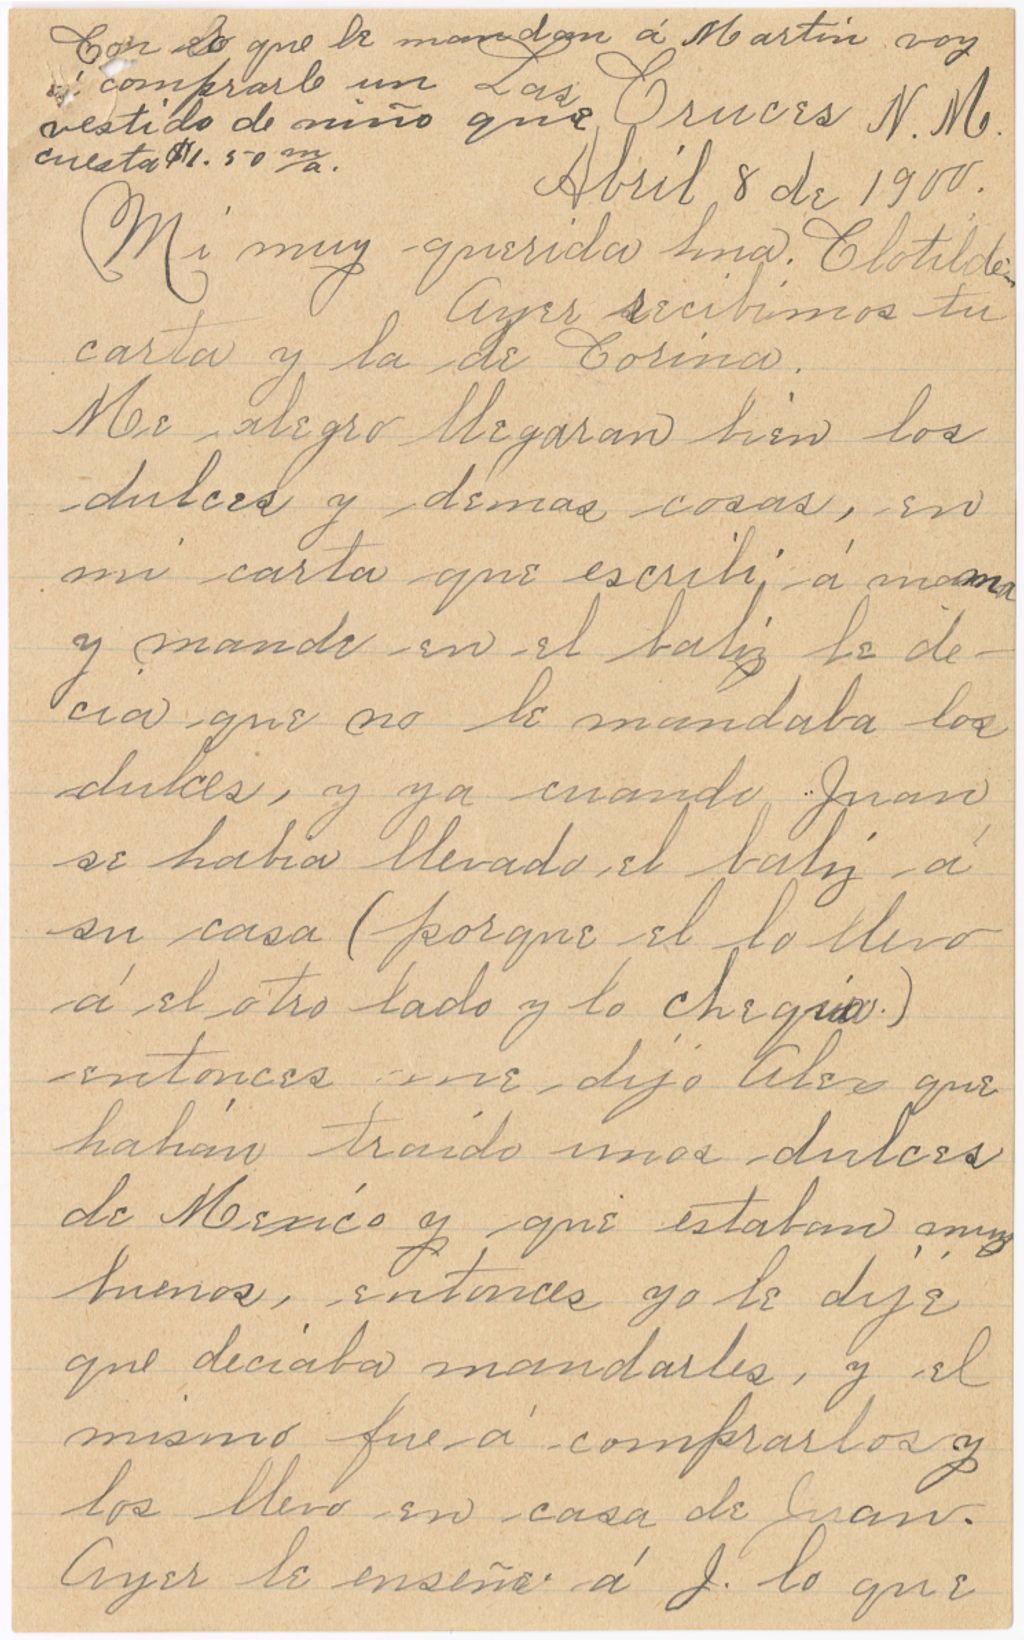 Con lo que le mandan á Martin voy
á comprarle un
vestido de niño que
cuesta $1.50 m/a.
Las Cruces N. M.
Abril 8 de 1900.
Mi muy querida hna. Clotilde:
Ayer recibimos tu
carta y la de Corina.
Me alegro llegaran bien los
dulces y demas cosas, en
mi carta que escribi á mama
y mande en el baliz le de-
cia que no le mandaba los
dulces, y ya cuando Juan
se habia llevado el baliz á
su casa (porque el lo llevo
á el otro lado y lo)
entonces me dijo Alex que
habían traido unos dulces
de Mexíco y que estaban muy
buenos, entonces yo le dije
que deciaba mandarles, y el
mismo fue á comprarlos y
los llevo en casa de Juan.
Ayer le enseñe á J. lo que